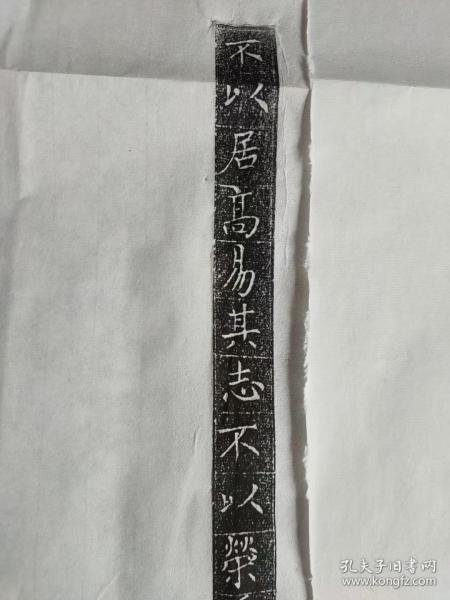 不以居高易其志不以榮
孔夫子旧书网
www.kongfz.com